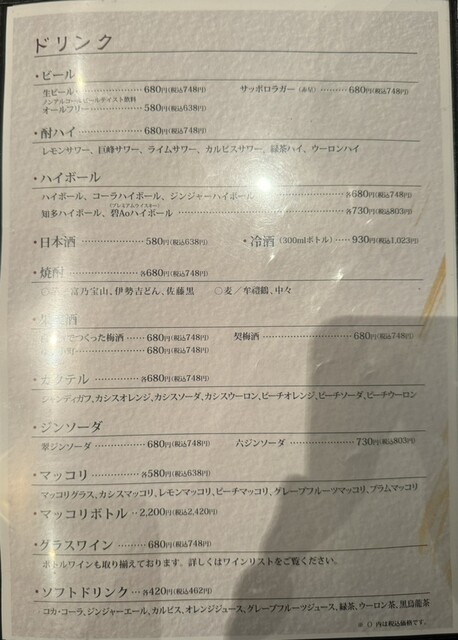 ドリンク
・ビール
生ビール 680円(税込748円) サッポロラガー（赤星） 680円(税込748円)
ノンアルコールビールテイスト飲料
オールフリー 580円(税込638円)
・酎ハイ 680円(税込748円)
レモンサワー、巨峰サワー、ライムサワー、カルピスサワー、緑茶ハイ、ウーロンハイ
・ハイボール
ハイボール、コーラハイボール、ジンジャーハイボール 各680円(税込748円)
(プレミアムウイスキー)
知多ハイボール、碧Aoハイボール 各730円(税込803円)
・日本酒 580円(税込638円) ・冷酒（300mlボトル） 930円(税込1,023円)
・焼酎 各680円(税込748円)
富乃宝山、伊勢吉どん、佐藤黒 ○麦／牟禮鶴、中々
酒
でつくった梅酒 680円(税込748円) 梅酒 680円(税込748円)
680円(税込748円)
・カクテル 各680円(税込748円)
シャンディガフ、カシスオレンジ、カシスソーダ、カシスウーロン、ピーチオレンジ、ピーチソーダ、ピーチウーロン
・ジンソーダ
翠ジンソーダ 680円(税込748円) 六ジンソーダ 730円(税込803円)
・マッコリ 各580円(税込638円)
マッコリグラス、カシスマッコリ、レモンマッコリ、ピーチマッコリ、グレープフルーツマッコリ、プラムマッコリ
・マッコリボトル ‥2,200円(税込2,420円)
・グラスワイン 680円(税込748円)
ボトルワインも取り揃えております。詳しくはワインリストをご覧ください。
・ソフトドリンク… 各420円(税込462円)
コカ・コーラ、ジンジャーエール、カルピス、オレンジジュース、グレープフルーツジュース、緑茶、ウーロン茶、黒烏龍茶
※（）内は税込価格です。